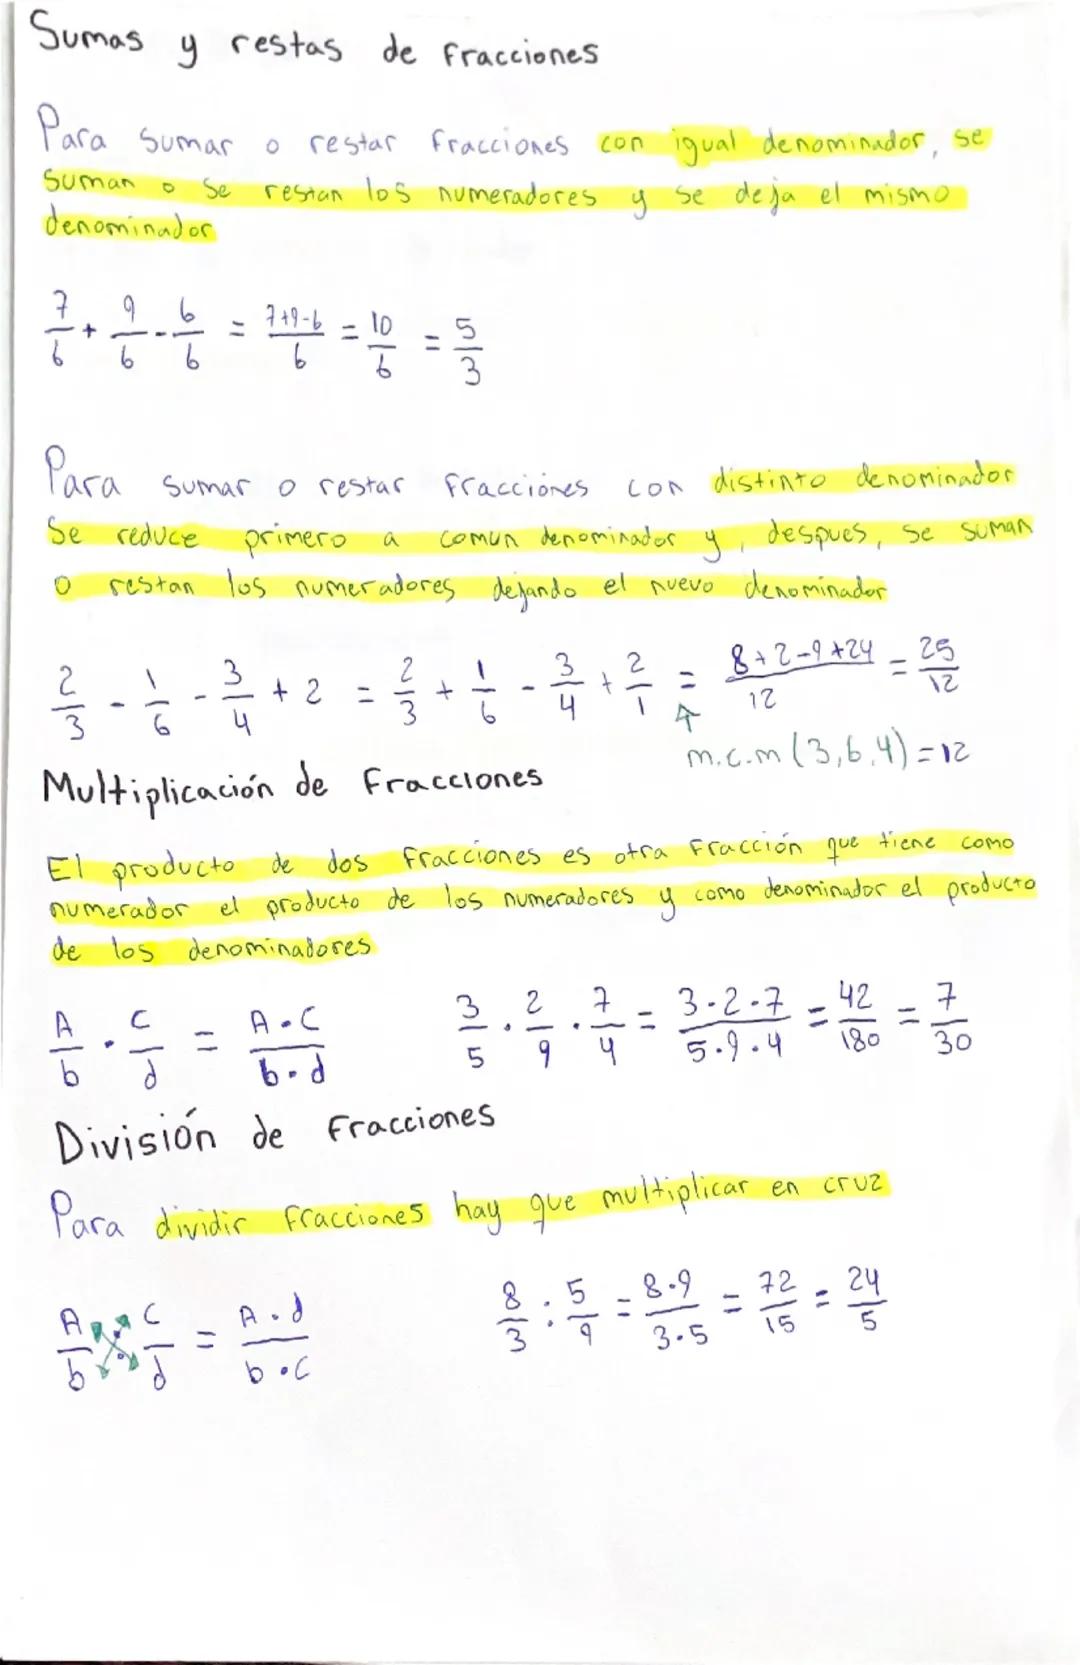 Sumas y restas de fracciones
Para sumar o restar fracciones con igual denominador, se
suman o se restan los numeradores y se deja el mismo
denominador
7/6 + 9/6 - 6/6 = 7+9-6/6 = 10/6 = 5/3
Para sumar o restar fracciones con distinto denominador
Se reduce primero a comun denominador y, despues, se suman
o restan los numeradores dejando el nuevo denominador
2/3 - 1/6 - 3/4 + 2 = 2/3 + 1/6 - 3/4 + 2/1 = 8+2-9+24/12 = 25/12
m.c.m (3,6,4) = 12
Multiplicación de fracciones
El producto de dos fracciones es otra fracción que tiene como
numerador el producto de los numeradores y como denominador el producto
de los denominadores
A/b · C/d = A·C/b·d 3/5 · 2/9 · 7/4 = 3·2·7/5·9·4 = 42/180 = 7/30
División de fracciones
Para dividir fracciones hay que multiplicar en cruz
A/b : C/d = A·d/b·C 8/3 : 5/9 = 8·9/3·5 = 72/15 = 24/5